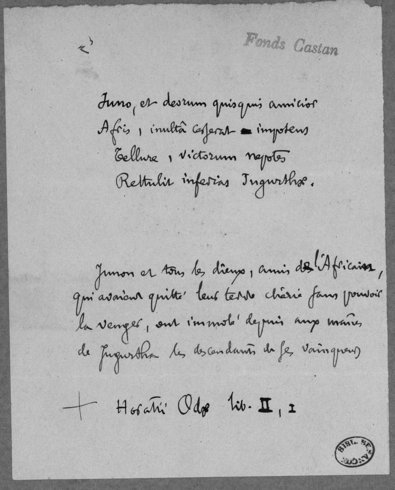 Fonds Castan
Juno, et deorum quisquis amicior
Afris, inultâ cesserat impotens
Tellure, victorum nepotes
Rettulit inferias Jugurthæ.
Junon et tous les dieux, amis de l'Africain,
qui avaient quitté leur terre chérie sans pouvoir
la venger, ont immolé depuis aux mânes
de Jugurtha les descendants de ses vainqueurs
+ Horatii Odæ lib. II, 1
BIBL. BESANÇON